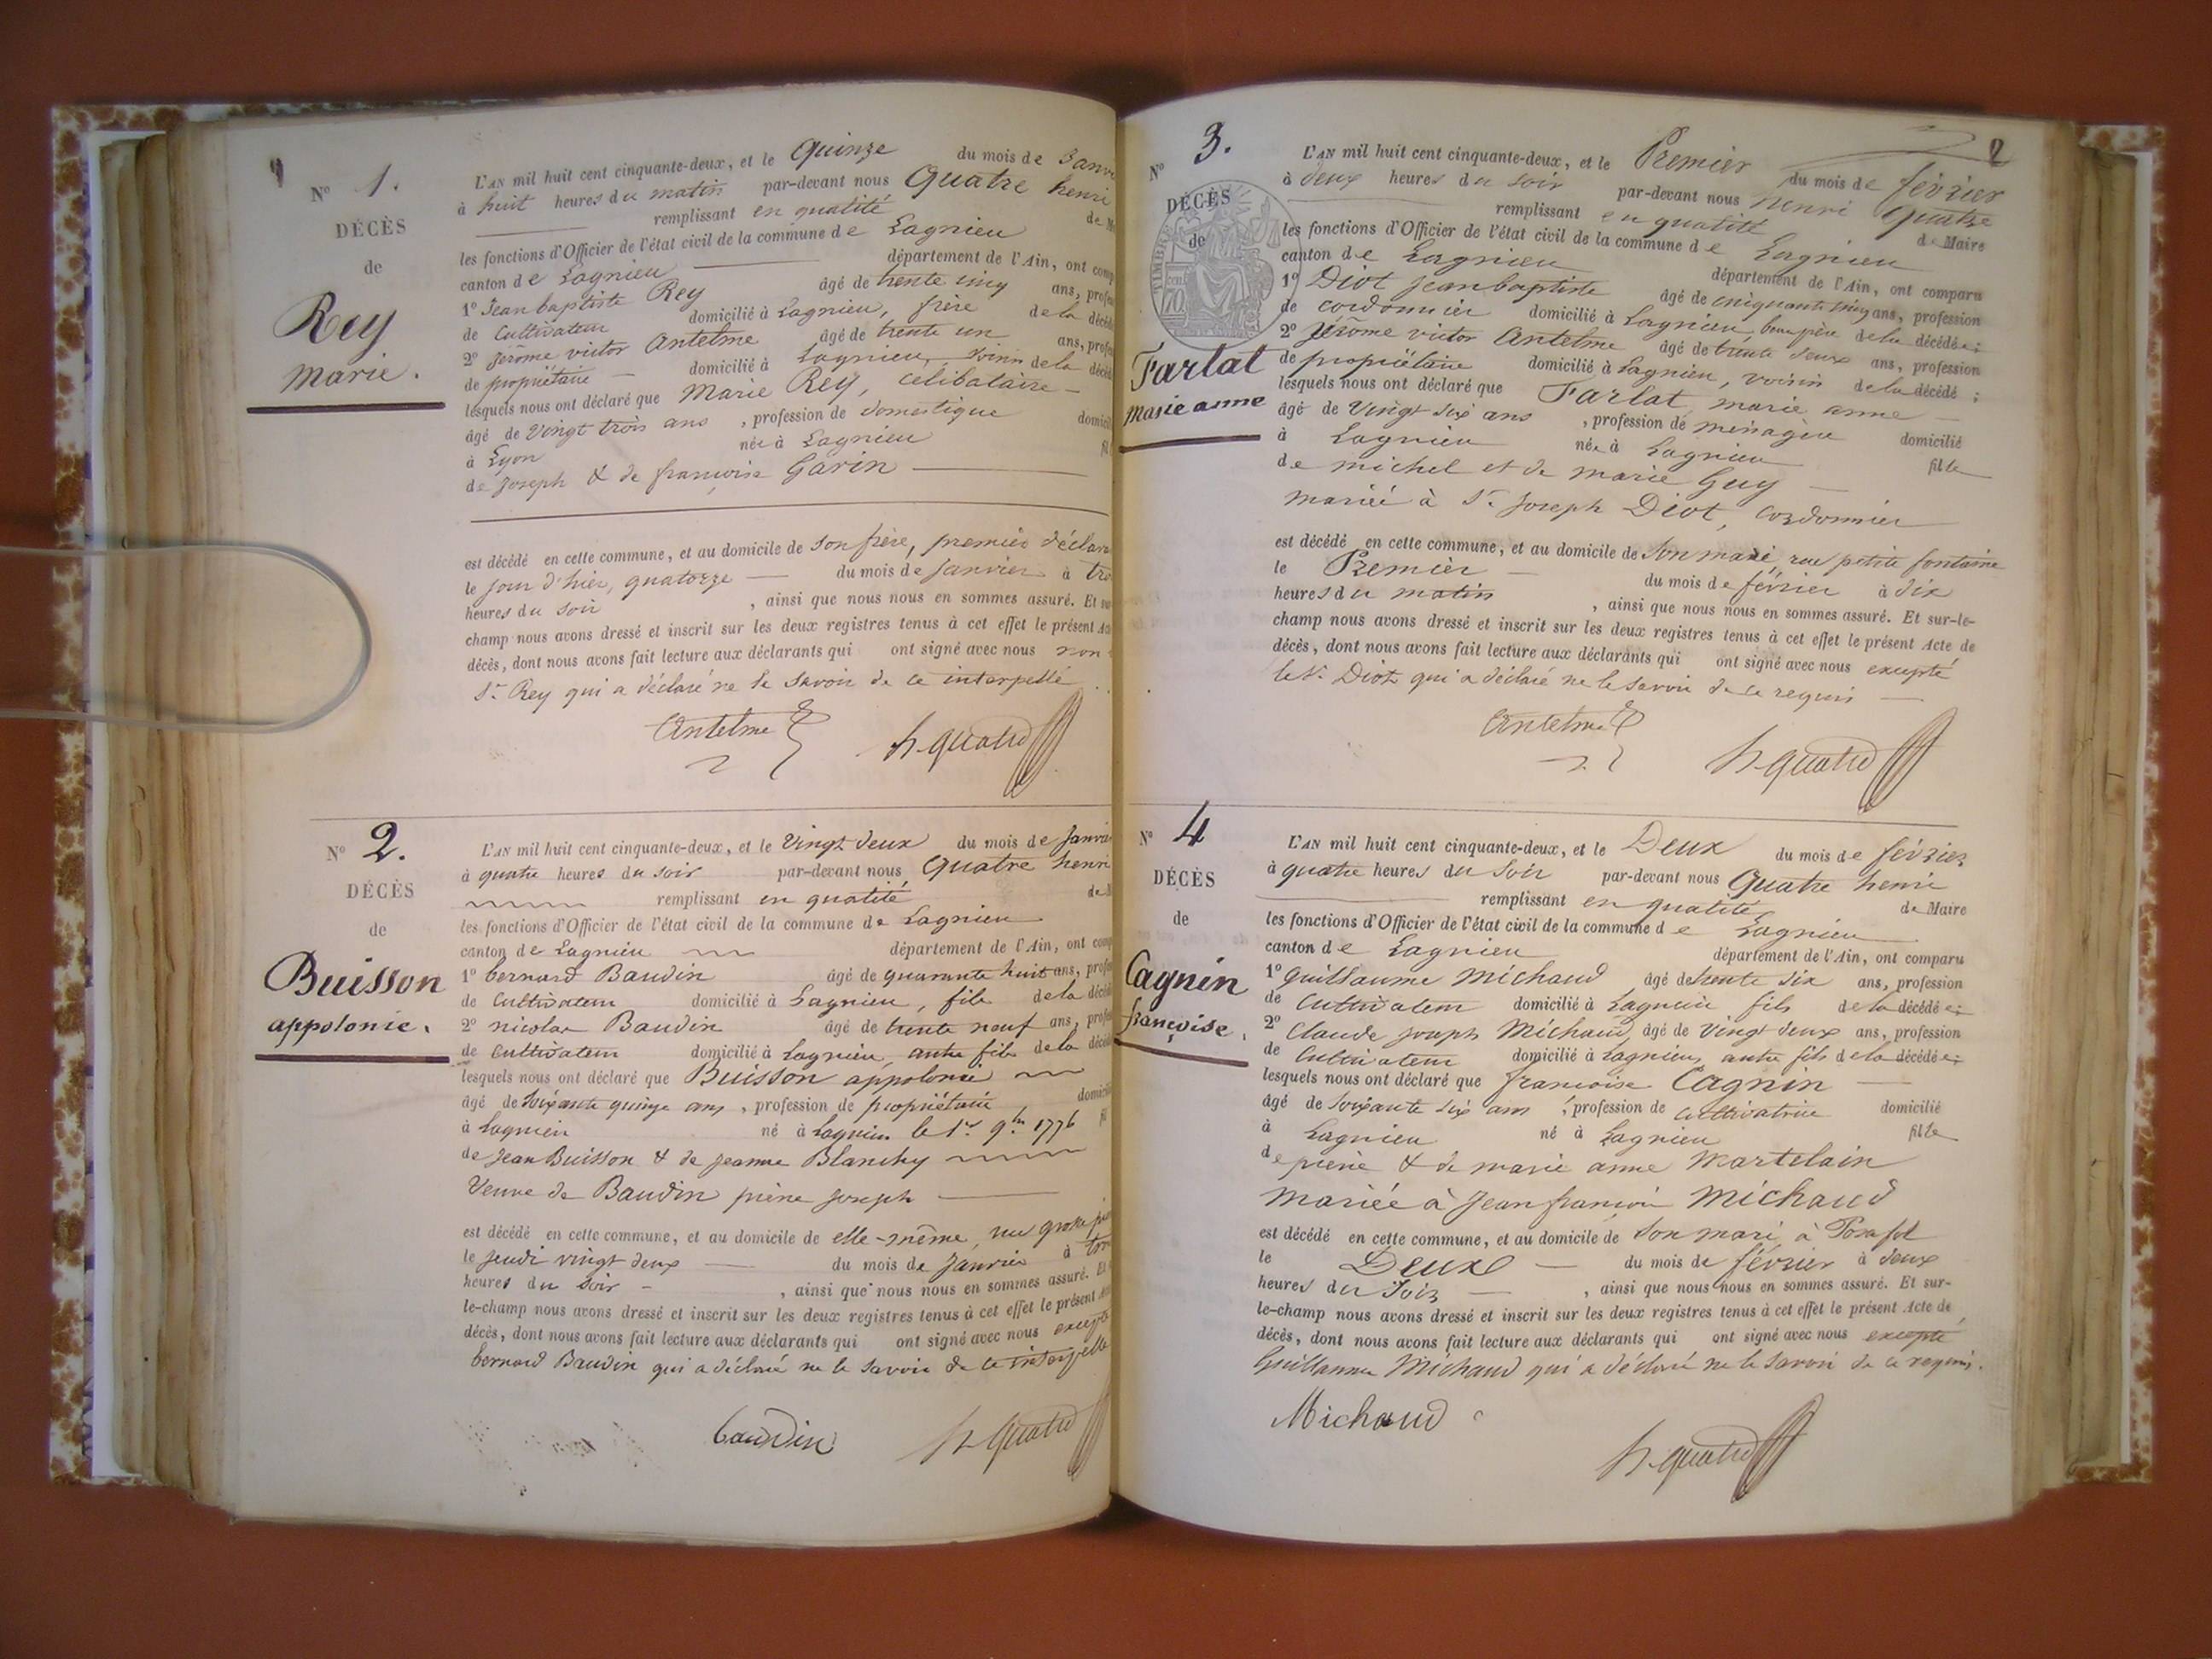 N° 1.
DÉCÈS
de
Rey
marie.
L'AN mil huit cent cinquante-deux, et le Quinze du mois de Janvi
à huit heures du matin par-devant nous Quatre henri
remplissant en qualité de M
les fonctions d'Officier de l'état civil de la commune de Lagnieu
canton de Lagnieu département de l'Ain, ont comp
1° Jean baptiste Rey âgé de trente cinq ans, profes
de Cultivateur domicilié à Lagnieu, frère de la décéd
2° jérôme victor Antelme âgé de trente un ans, profes
de propriétaire domicilié à Lagnieu, voisin de la décéd
lesquels nous ont déclaré que Marie Rey, célibataire
âgé de vingt trois ans, profession de domestique domicil
à Lyon née à Lagnieu fil
de joseph & de françoise Garin
est décédé en cette commune, et au domicile de son frère, premier déclara
le jour d'hier, quatorze du mois de janvier à tro
heures du soir, ainsi que nous nous en sommes assuré. Et sur
champ nous avons dressé et inscrit sur les deux registres tenus à cet effet le présent Ac
décès, dont nous avons fait lecture aux déclarants qui ont signé avec nous non
Sr. Rey qui a déclaré ne le savoir de ce interpellé
Antelme h. quatre
N° 2.
DÉCÈS
de
Buisson
appolonie.
L'AN mil huit cent cinquante-deux, et le Vingt deux du mois de Janvie
à quatre heures du soir par-devant nous Quatre henri
remplissant en qualité de M
les fonctions d'Officier de l'état civil de la commune de Lagnieu
canton de Lagnieu département de l'Ain, ont comp
1° bernard Baudin âgé de quarante huit ans, profes
de Cultivateur domicilié à Lagnieu, fils de la décéd
2° nicolas Baudin âgé de trente neuf ans, profes
de Cultivateur domicilié à Lagnieu, autre fils de la décéd
lesquels nous ont déclaré que Buisson appolonie
âgé de soixante quinze ans, profession de propriétaire domicilié
à Lagnieu né à Lagnieu le 1er 9bre 1776 fil
de Jean Buisson & de jeanne Blanchy
Veuve de Baudin pierre joseph
est décédé en cette commune, et au domicile de elle-même, rue grosse pier
le jeudi vingt deux du mois de Janvier à tro
heures du soir, ainsi que nous nous en sommes assuré. Et
le-champ nous avons dressé et inscrit sur les deux registres tenus à cet effet le présent Ac
décès, dont nous avons fait lecture aux déclarants qui ont signé avec nous excepté
bernard Baudin qui a déclaré ne le savoir de ce interpellé
baudin h. quatre
2
N° 3.
DÉCÈS
de
TIMBRE
70
Farlat
marie anne
L'AN mil huit cent cinquante-deux, et le Premier du mois de février
à deux heures du soir par-devant nous henri Quatre
remplissant en qualité de Maire
les fonctions d'Officier de l'état civil de la commune de Lagnieu
canton de Lagnieu département de l'Ain, ont comparu
1° Diot jean baptiste âgé de cinquante cinq ans, profession
de cordonnier domicilié à Lagnieu, beau père de la décédée;
2° jérôme victor Antelme âgé de trente deux ans, profession
de propriétaire domicilié à Lagnieu, voisin de la décédé;
lesquels nous ont déclaré que Farlat, marie anne
âgé de Vingt six ans, profession de ménagère domicilié
à Lagnieu née à Lagnieu fille
de michel et de marie Guy
mariée à Sr. joseph Diot, cordonnier
est décédé en cette commune, et au domicile de son mari, rue petite fontaine
le Premier du mois de février à dix
heures du matin, ainsi que nous nous en sommes assuré. Et sur-le-
champ nous avons dressé et inscrit sur les deux registres tenus à cet effet le présent Acte de
décès, dont nous avons fait lecture aux déclarants qui ont signé avec nous excepté
le Sr. Diot qui a déclaré ne le savoir de ce requis
Antelme h. quatre
N° 4
DÉCÈS
de
Cagnin
françoise.
L'AN mil huit cent cinquante-deux, et le Deux du mois de février
à quatre heures du soir par-devant nous Quatre henri
remplissant en qualité de Maire
les fonctions d'Officier de l'état civil de la commune de Lagnieu
canton de Lagnieu département de l'Ain, ont comparu
1° guillaume Michaud âgé de trente six ans, profession
de Cultivateur domicilié à Lagnieu fils de la décédée;
2° Claude joseph Michaud, âgé de Vingt deux ans, profession
de Cultivateur domicilié à Lagnieu, autre fils de la décédée;
lesquels nous ont déclaré que françoise Cagnin
âgé de soixante six ans, profession de cultivatrice domicilié
à Lagnieu né à Lagnieu fille
de pierre & de marie anne Martelain
Mariée à Jean françois Michaud
est décédé en cette commune, et au domicile de son mari, à Posafol
le Deux du mois de février à deux
heures du soir, ainsi que nous nous en sommes assuré. Et sur-
le-champ nous avons dressé et inscrit sur les deux registres tenus à cet effet le présent Acte de
décès, dont nous avons fait lecture aux déclarants qui ont signé avec nous excepté
Guillaume Michaud qui a déclaré ne le savoir de ce requis.
Michaud h. quatre